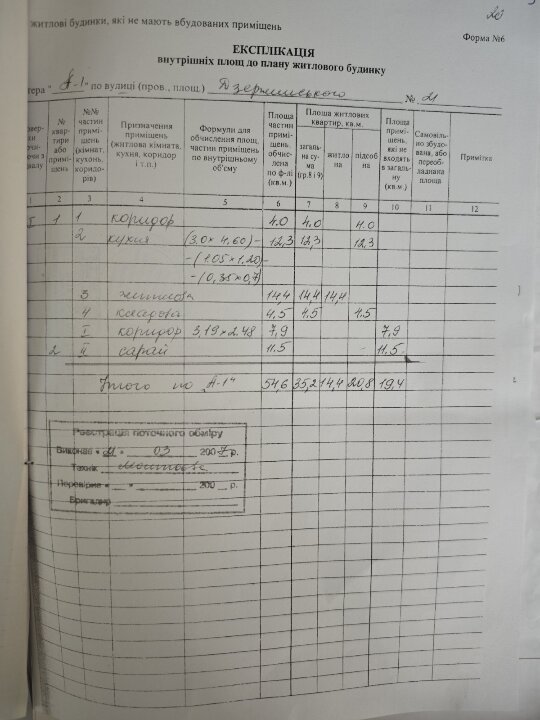 житлові будинки, які не мають вбудованих приміщень
20
Форма №6
ЕКСПЛІКАЦІЯ
внутрішніх площ до плану житлового будинку
тера " А-1 " по вулиці (пров., площ.) Дзержинського № 21
№ квар- тири або примі- щення
№№ частин примі- щення (кімнат, кухонь, коридо- рів)
Призначення приміщень (житлова кімната, кухня, коридор і т.п.)
Формули для обчислення площ, частин приміщень по внутрішньому об'єму
Площа частин примі- щень, обчис- лена по ф-лі (кв.м.)
Площа житлових квартир, кв.м.
загаль- на су- ма (гр.8 і 9)
житло на
підсоб на
Площа примі- щень, які не входять в загаль- ну (кв.м.)
Самовіль- но збудо- вана, або перео- бладнана площа
Примітка
1 2 3 4 5 6 7 8 9 10 11 12
I 1 1 коридор 4.0 4.0 4.0
2 кухня (3,0×4,60)- 12,3 12,3 12,3
-(1.05×1,20)-
-(0,35×0,7)
3 житлова 14,4 14,4 14,4
4 кладова 4,5 4.5 4.5
I коридор 3,19×2,48 7,9 7,9
2 II сарай 11.5 11.5
Итого по "А-1" 54,6 35,2 14,4 20,8 19,4
Реєстрація поточного обміру
Виконав " 21 " 03 2007 р.
Технік
Перевірив " " 200 р.
Бригадир